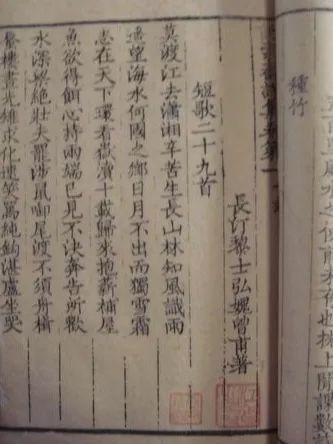 種竹
詩集卷第一
長汀黎士弘媿曾甫著
短歌二十九首
莫渡江去瀟湘辛苦生長山林知風識雨
遙望海水何國之鄉日月不出而獨雪霜
志在天下環看嶽瀆十載歸來抱薪補屋
魚欲得餌心持兩端已見不決奔告所歡
水深與絕壯夫罷涉鼠啣尾渡不須舟楫
樓晝光雉求化笑萬純鈎湛盧生哭